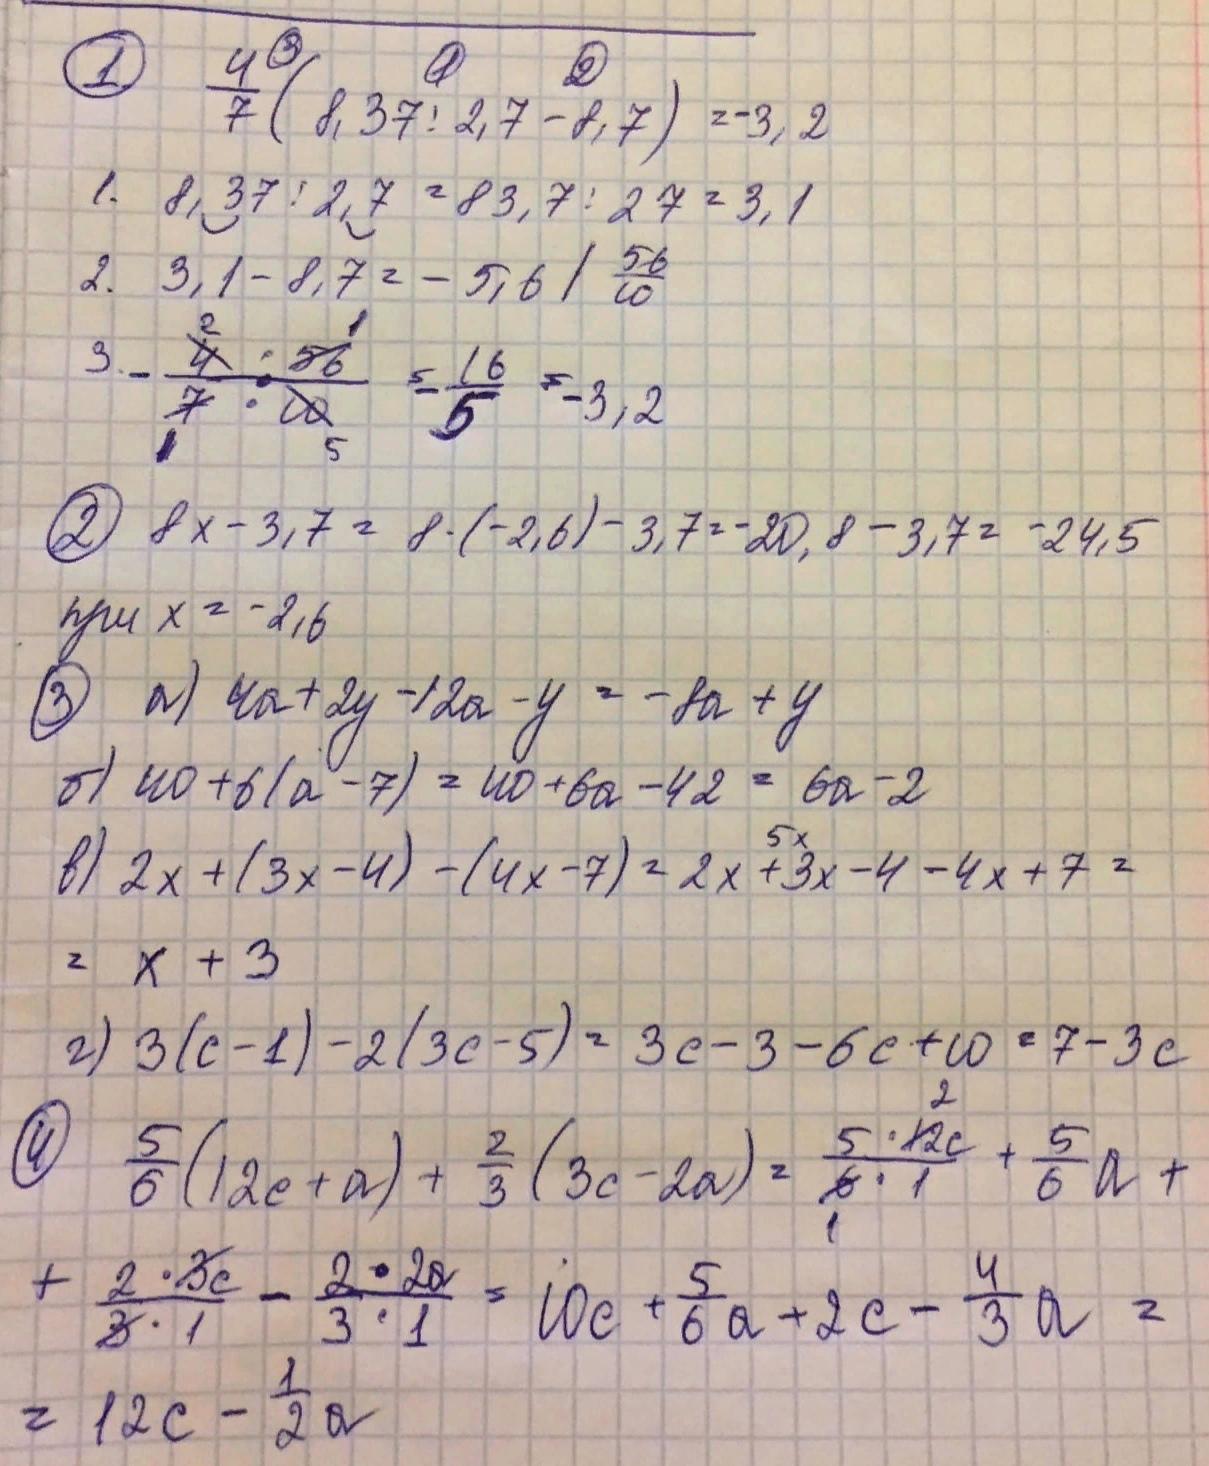 ① 4/7 ③ ( 8,37 ① : 2,7 ② − 8,7 ) = −3,2
1. 8,37 : 2,7 = 83,7 : 27 = 3,1
2. 3,1 − 8,7 = − 5,6 / 56/10
3. − (4 · 56)/(7 · 10) = − 16/5 = −3,2
2 1
1 5
② 8x − 3,7 = 8·(−2,6) − 3,7 = −20,8 − 3,7 = −24,5
при x = −2,6
③ а) 4a + 2y − 12a − y = −8a + y
б) 40 + 6(a − 7) = 40 + 6a − 42 = 6a − 2
5x
в) 2x + (3x − 4) − (4x − 7) = 2x + 3x − 4 − 4x + 7 =
= x + 3
г) 3(c − 1) − 2(3c − 5) = 3c − 3 − 6c + 10 = 7 − 3c
2
④ 5/6 (12c + a) + 2/3 (3c − 2a) = (5 · 12c)/(6 · 1) + 5/6 a +
1
+ (2 · 3c)/(3 · 1) − (2 · 2a)/(3 · 1) = 10c + 5/6 a + 2c − 4/3 a =
= 12c − 1/2 a